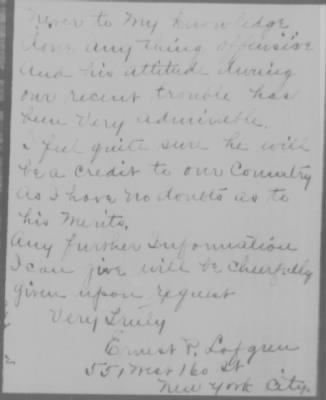 Never to my knowledge
done anything offensive
and his attitude during
our recent trouble has
been very admirable.
I feel quite sure he will
be a credit to our Country
As I have no doubts as to
his Merits.
Any further Information
I can give will be cheerfully
given upon request
Very Truly
Ernest R. Lofgren
551 West 160 St
New York City.